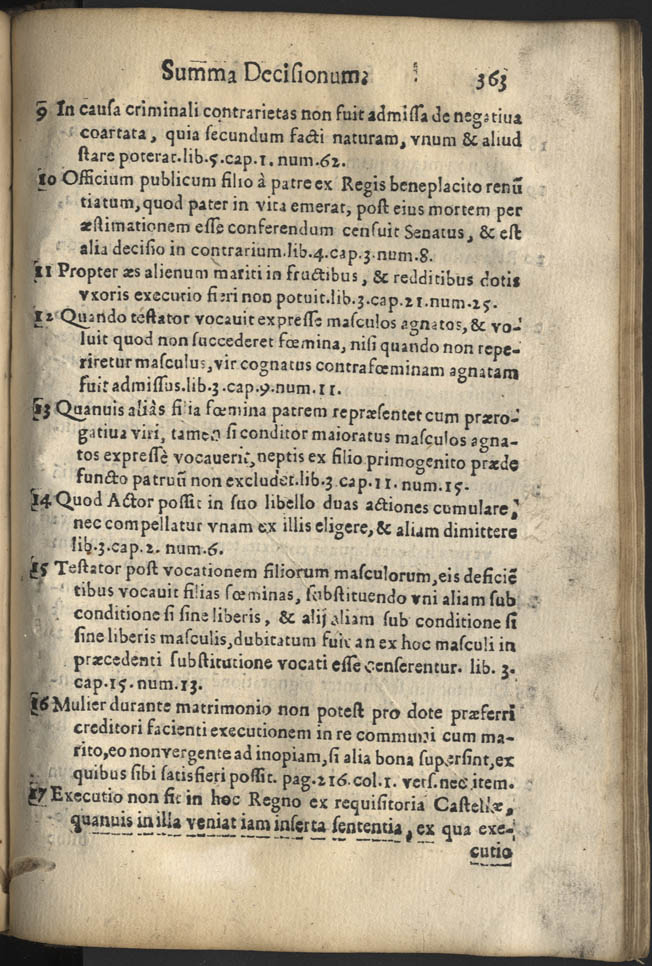 Sum̃a Decisionum.
363
9 In causa criminali contrarietas non fuit admissa de negatiua
coartata, quia secundum facti naturam, vnum & aliud
stare poterat.lib.5.cap.1. num.62.
10 Officium publicum filio à patre ex Regis beneplacito renũ
tiatum, quod pater in vita emerat, post eius mortem per
æstimationem esse conferendum censuit Senatus, & est
alia decisio in contrarium.lib.4.cap.3.num.8.
11 Propter æs alienum mariti in fructibus, & redditibus dotis
vxoris executio fieri non potuit.lib.3.cap.21.num.25.
12 Quando testator vocauit expresse masculos agnatos, & vo-
luit quod non succederet fœmina, nisi quando non repe-
riretur masculus, vir cognatus contra fœminam agnatam
fuit admissus.lib.3.cap.9.num.11.
13 Quanuis aliàs filia fœmina patrem repræsentet cum præro-
gatiua viri, tamen si conditor maioratus masculos agna-
tos expressè vocauerit, neptis ex filio primogenito præde
functo patruũ non excludet.lib.3.cap.11.num.15.
14 Quod Actor possit in suo libello duas actiones cumulare,
nec compellatur vnam ex illis eligere, & aliam dimittere
lib.3.cap.2. num.6.
15 Testator post vocationem filiorum masculorum, eis deficiẽ
tibus vocauit filias fœminas, substituendo vni aliam sub
conditione si sine liberis, & alij aliam sub conditione si
sine liberis masculis, dubitatum fuit an ex hoc masculi in
præcedenti substitutione vocati esse censerentur. lib. 3.
cap.15.num.13.
16 Mulier durante matrimonio non potest pro dote præferri
creditori facienti executionem in re communi cum ma-
rito, eo non vergente ad inopiam, si alia bona supersint, ex
quibus sibi satisfieri possit. pag.216.col.1. vers.nec item.
17 Executio non fit in hoc Regno ex requisitoria Castellæ,
quanuis in illa veniat iam inserta sententia, ex qua exe-
cutio